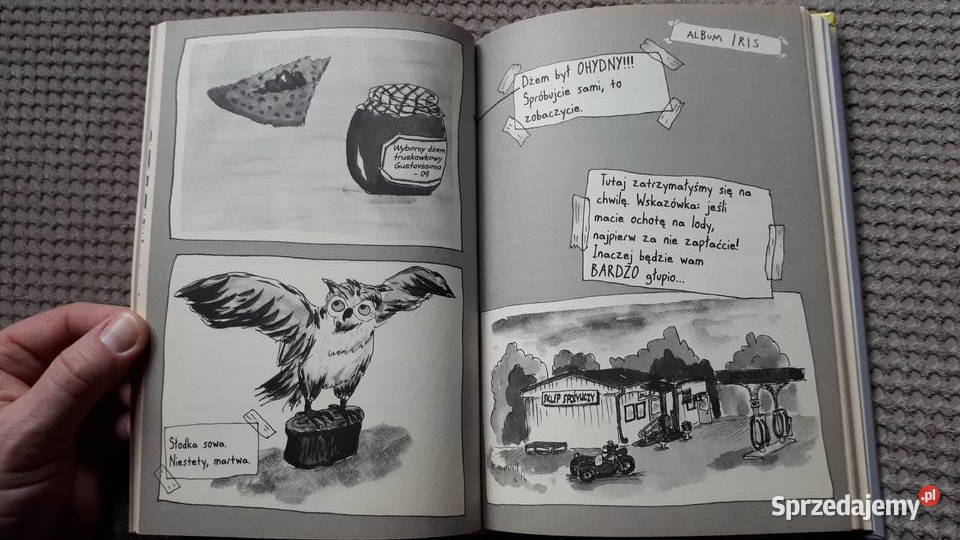 Wyborny dżem
truskawkowy
Gustavssona
- 09
Słodka sowa.
Niestety, martwa.
ALBUM IRIS
Dżem był OHYDNY!!!
Spróbujcie sami, to
zobaczycie.
Tutaj zatrzymałyśmy się na
chwilę. Wskazówka: jeśli
macie ochotę na lody,
najpierw za nie zapłaćcie!
Inaczej będzie wam
BARDZO głupio...
SKLEP SPOŻYWCZY
Sprzedajemy.pl